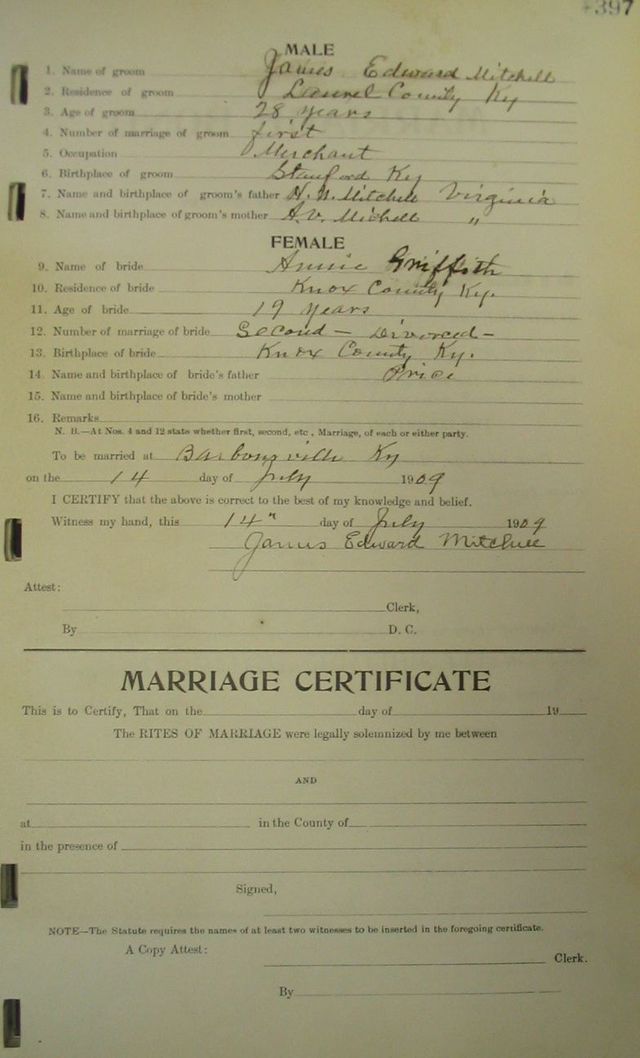 397
MALE
1. Name of groom James Edward Mitchell
2. Residence of groom Laurel County Ky
3. Age of groom 28 years
4. Number of marriage of groom first
5. Occupation Merchant
6. Birthplace of groom Stanford Ky
7. Name and birthplace of groom's father H. N. Mitchell Virginia
8. Name and birthplace of groom's mother A. V. Michell "
FEMALE
9. Name of bride Annie Griffith
10. Residence of bride Knox County Ky.
11. Age of bride 19 years
12. Number of marriage of bride Second — Divorced —
13. Birthplace of bride Knox County Ky.
14. Name and birthplace of bride's father Price
15. Name and birthplace of bride's mother
16. Remarks
N. B.—At Nos. 4 and 12 state whether first, second, etc., Marriage, of each or either party.
To be married at Barboursville Ky
on the 14 day of July 1909
I CERTIFY that the above is correct to the best of my knowledge and belief.
Witness my hand, this 14" day of July 1909
James Edward Mitchell
Attest:
Clerk,
By D. C.
MARRIAGE CERTIFICATE
This is to Certify, That on the day of 19
The RITES OF MARRIAGE were legally solemnized by me between
AND
at in the County of
in the presence of
Signed,
NOTE—The Statute requires the names of at least two witnesses to be inserted in the foregoing certificate.
A Copy Attest:
Clerk.
By